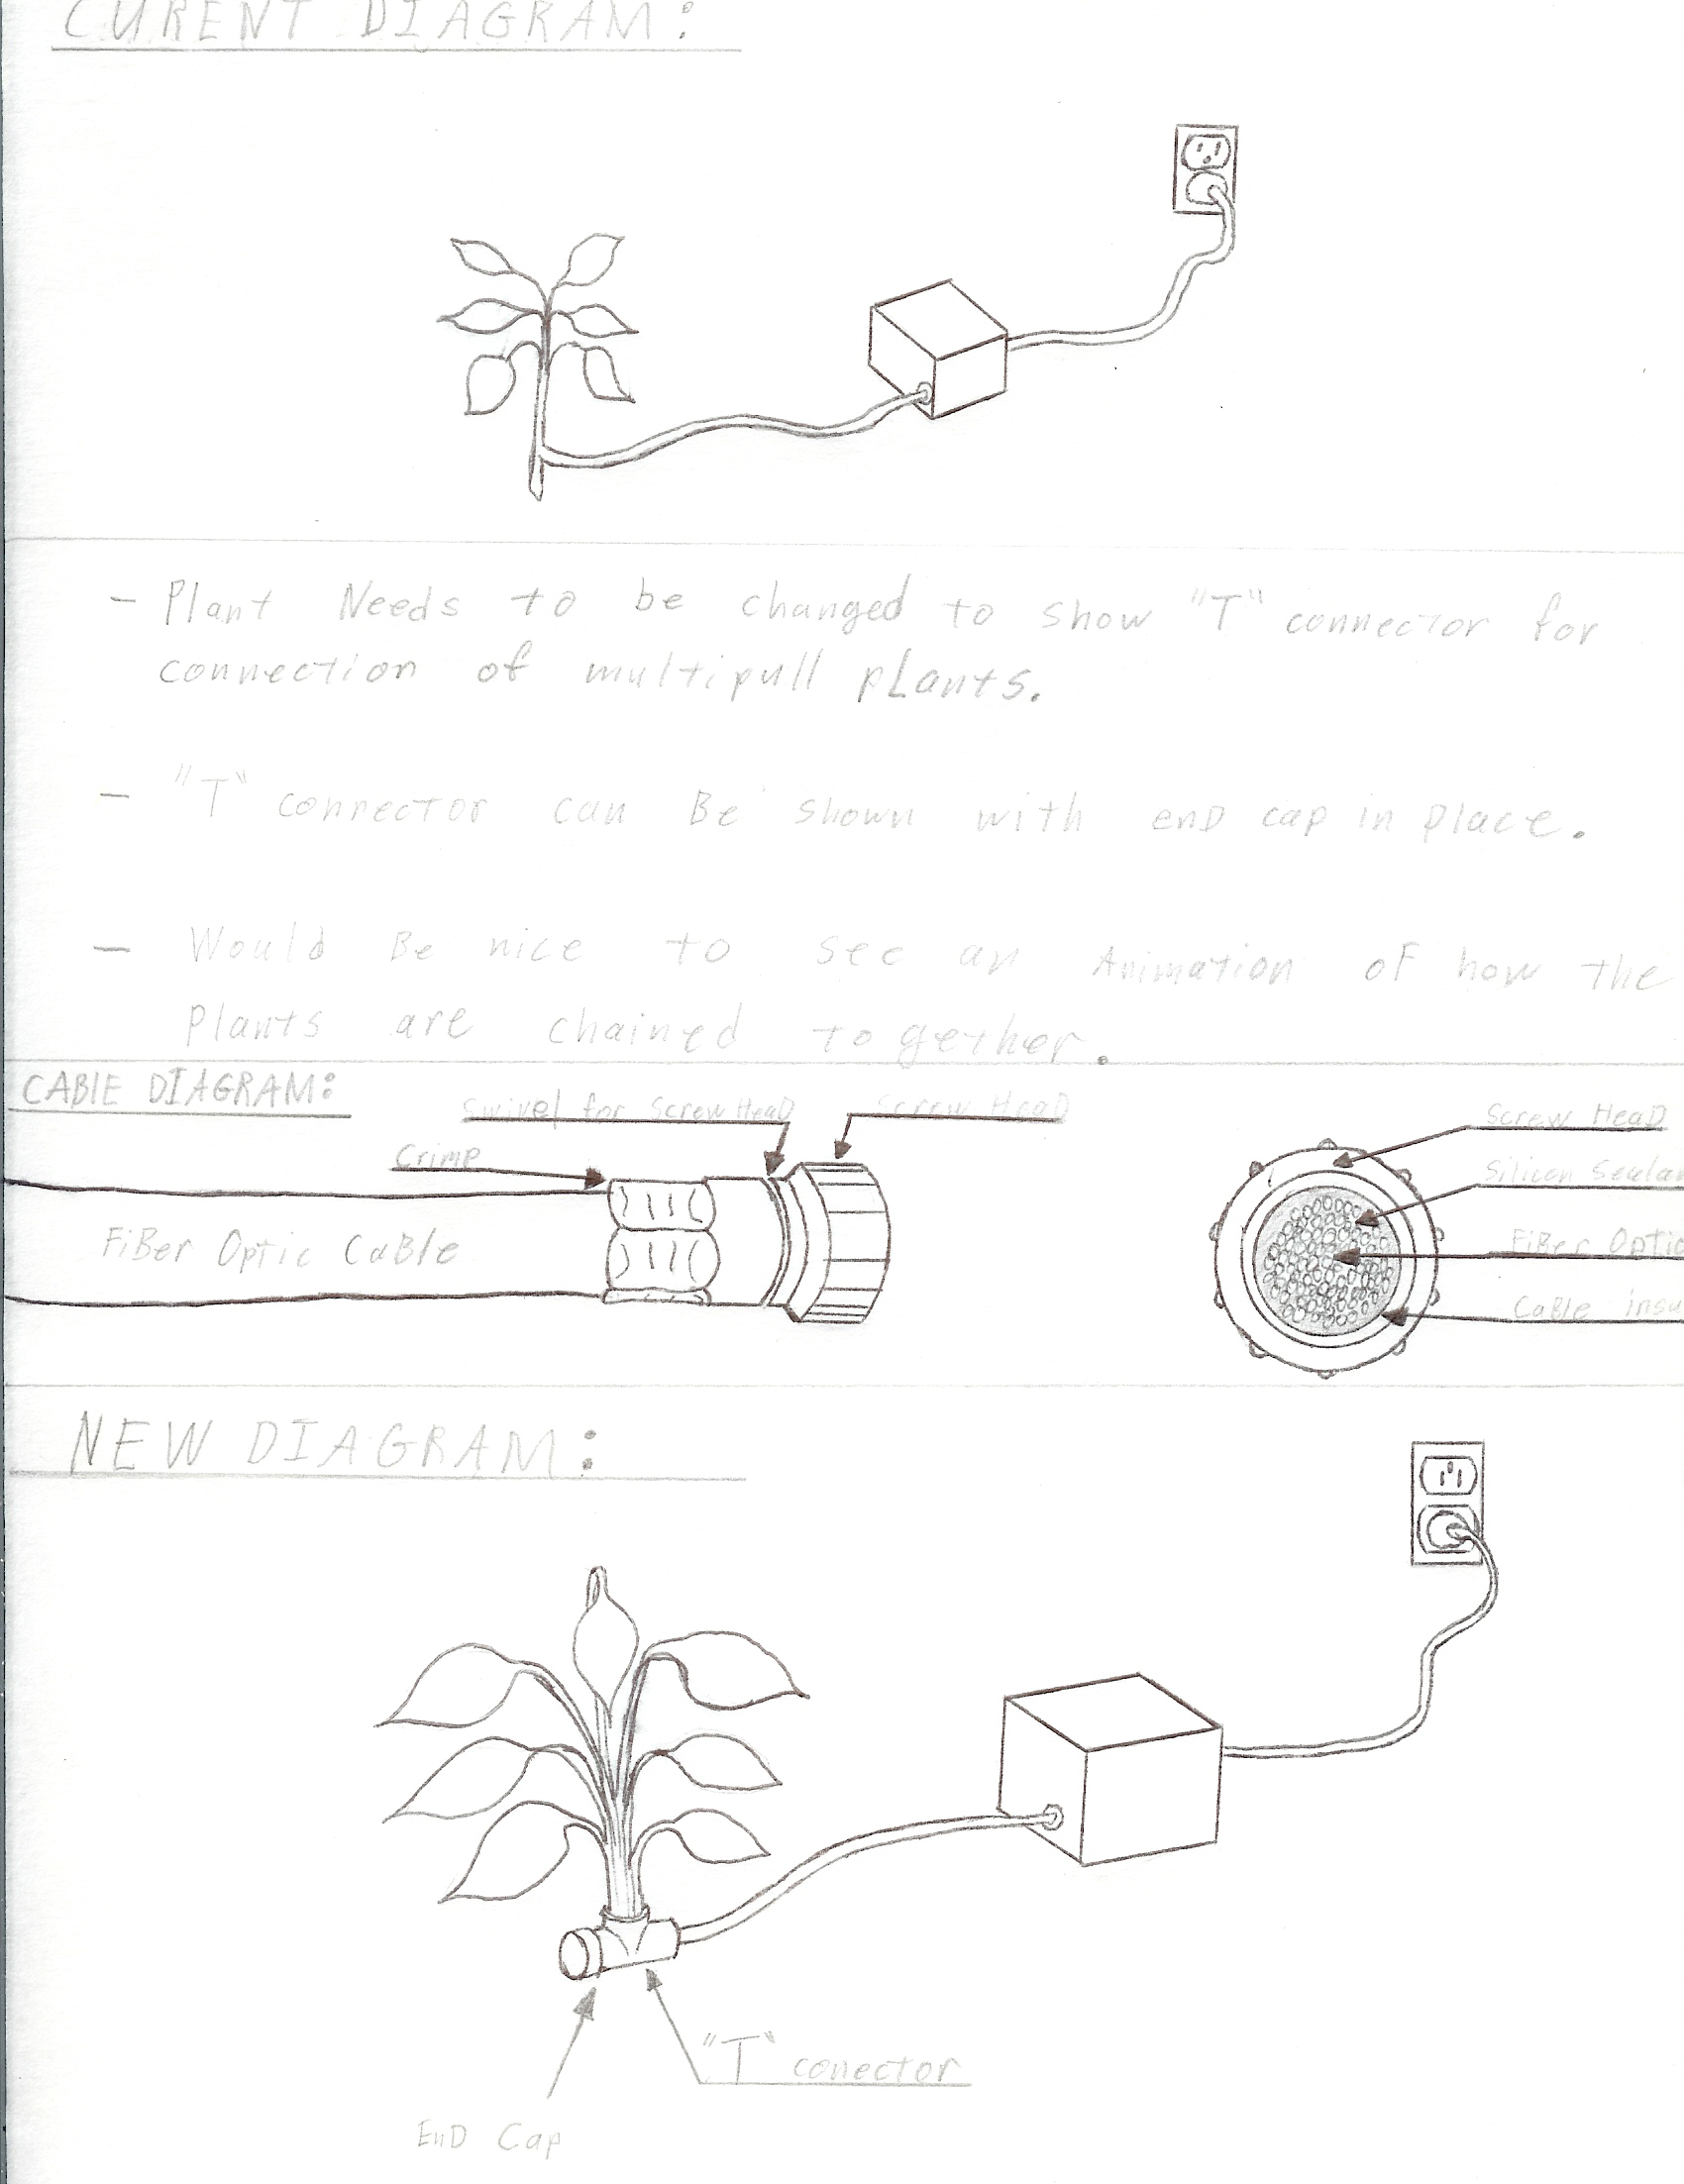 CURENT DIAGRAM:
- Plant Needs to be changed to show "T" connector for
connection of multipull pLants.
- "T" connector can Be shown with enD cap in place.
- Would Be nice to see an Animation of how the
plants are chained together.
CABlE DIAGRAM:
Swivel for Screw HeaD
Screw HeaD
Crimp
FiBer Optic CaBle
Screw HeaD
Silicon Sealan
FiBer Optic
CaBle insu
NEW DIAGRAM:
"T" conector
EnD Cap